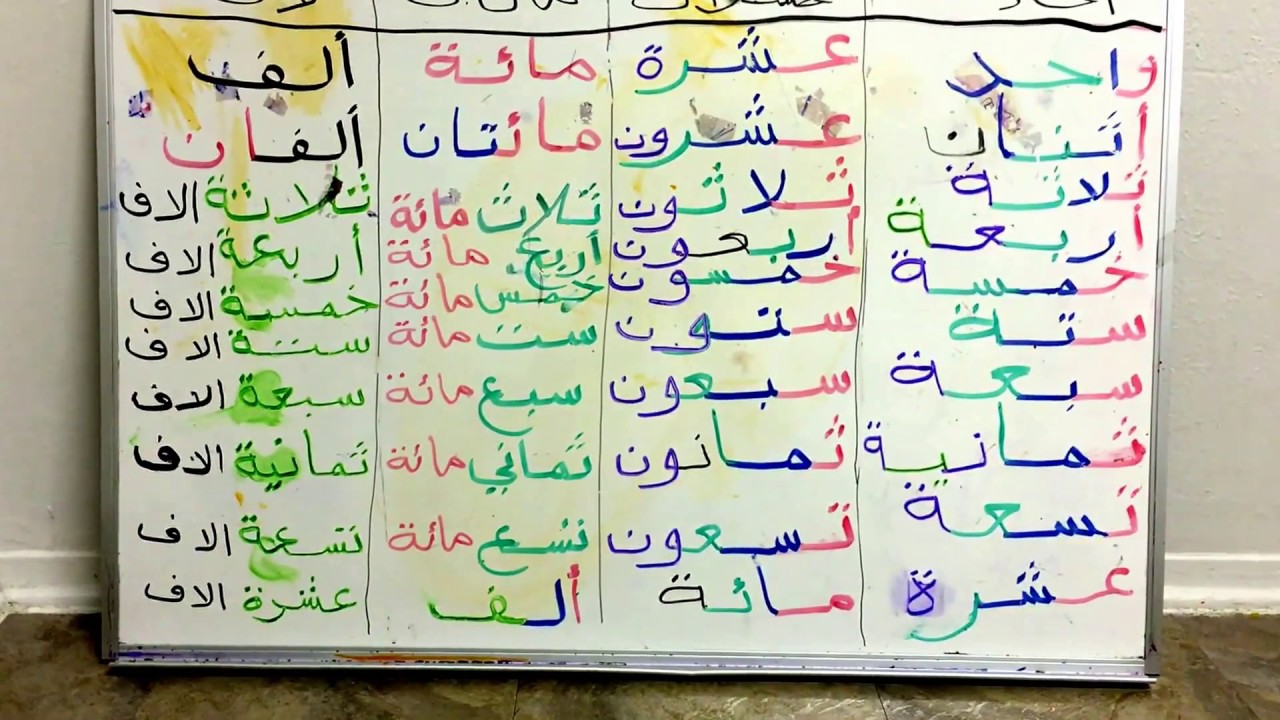 واحد عشرة مائة ألف
أثنان عشرون مائتان ألفان
ثلاثة ثلاثون ثلاث مائة ثلاثة الاف
أربعة أربعون أربع مائة أربعة الاف
خمسة خمسون خمس مائة خمسة الاف
ستة ستون ست مائة ستة الاف
سبعة سبعون سبع مائة سبعة الاف
ثمانية ثمانون ثماني مائة ثمانية الاف
تسعة تسعون تسع مائة تسعة الاف
عشرة مائة ألف عشرة الاف